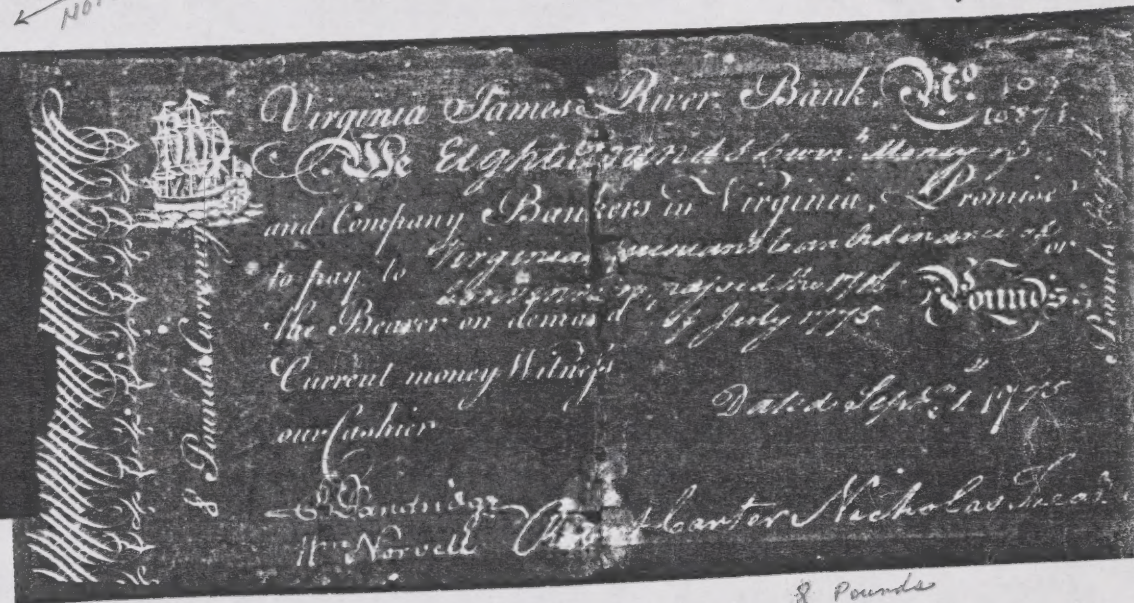 Virginia James River Bank. No.
1087
We Eight Pounds Curr.t Money of
and Company Bankers in Virginia, Promise
to pay to Virginia pursuant to an Ordinance of or
Convention passed the 17th
the Bearer on demand of July 1775 Pounds
Current money Witness
our Cashier
Dated Sept. 1 1775
8 Pounds Currency
Pounds
Dandridge
Wm Norvell
Robert Carter Nicholas Trear
8 Pounds